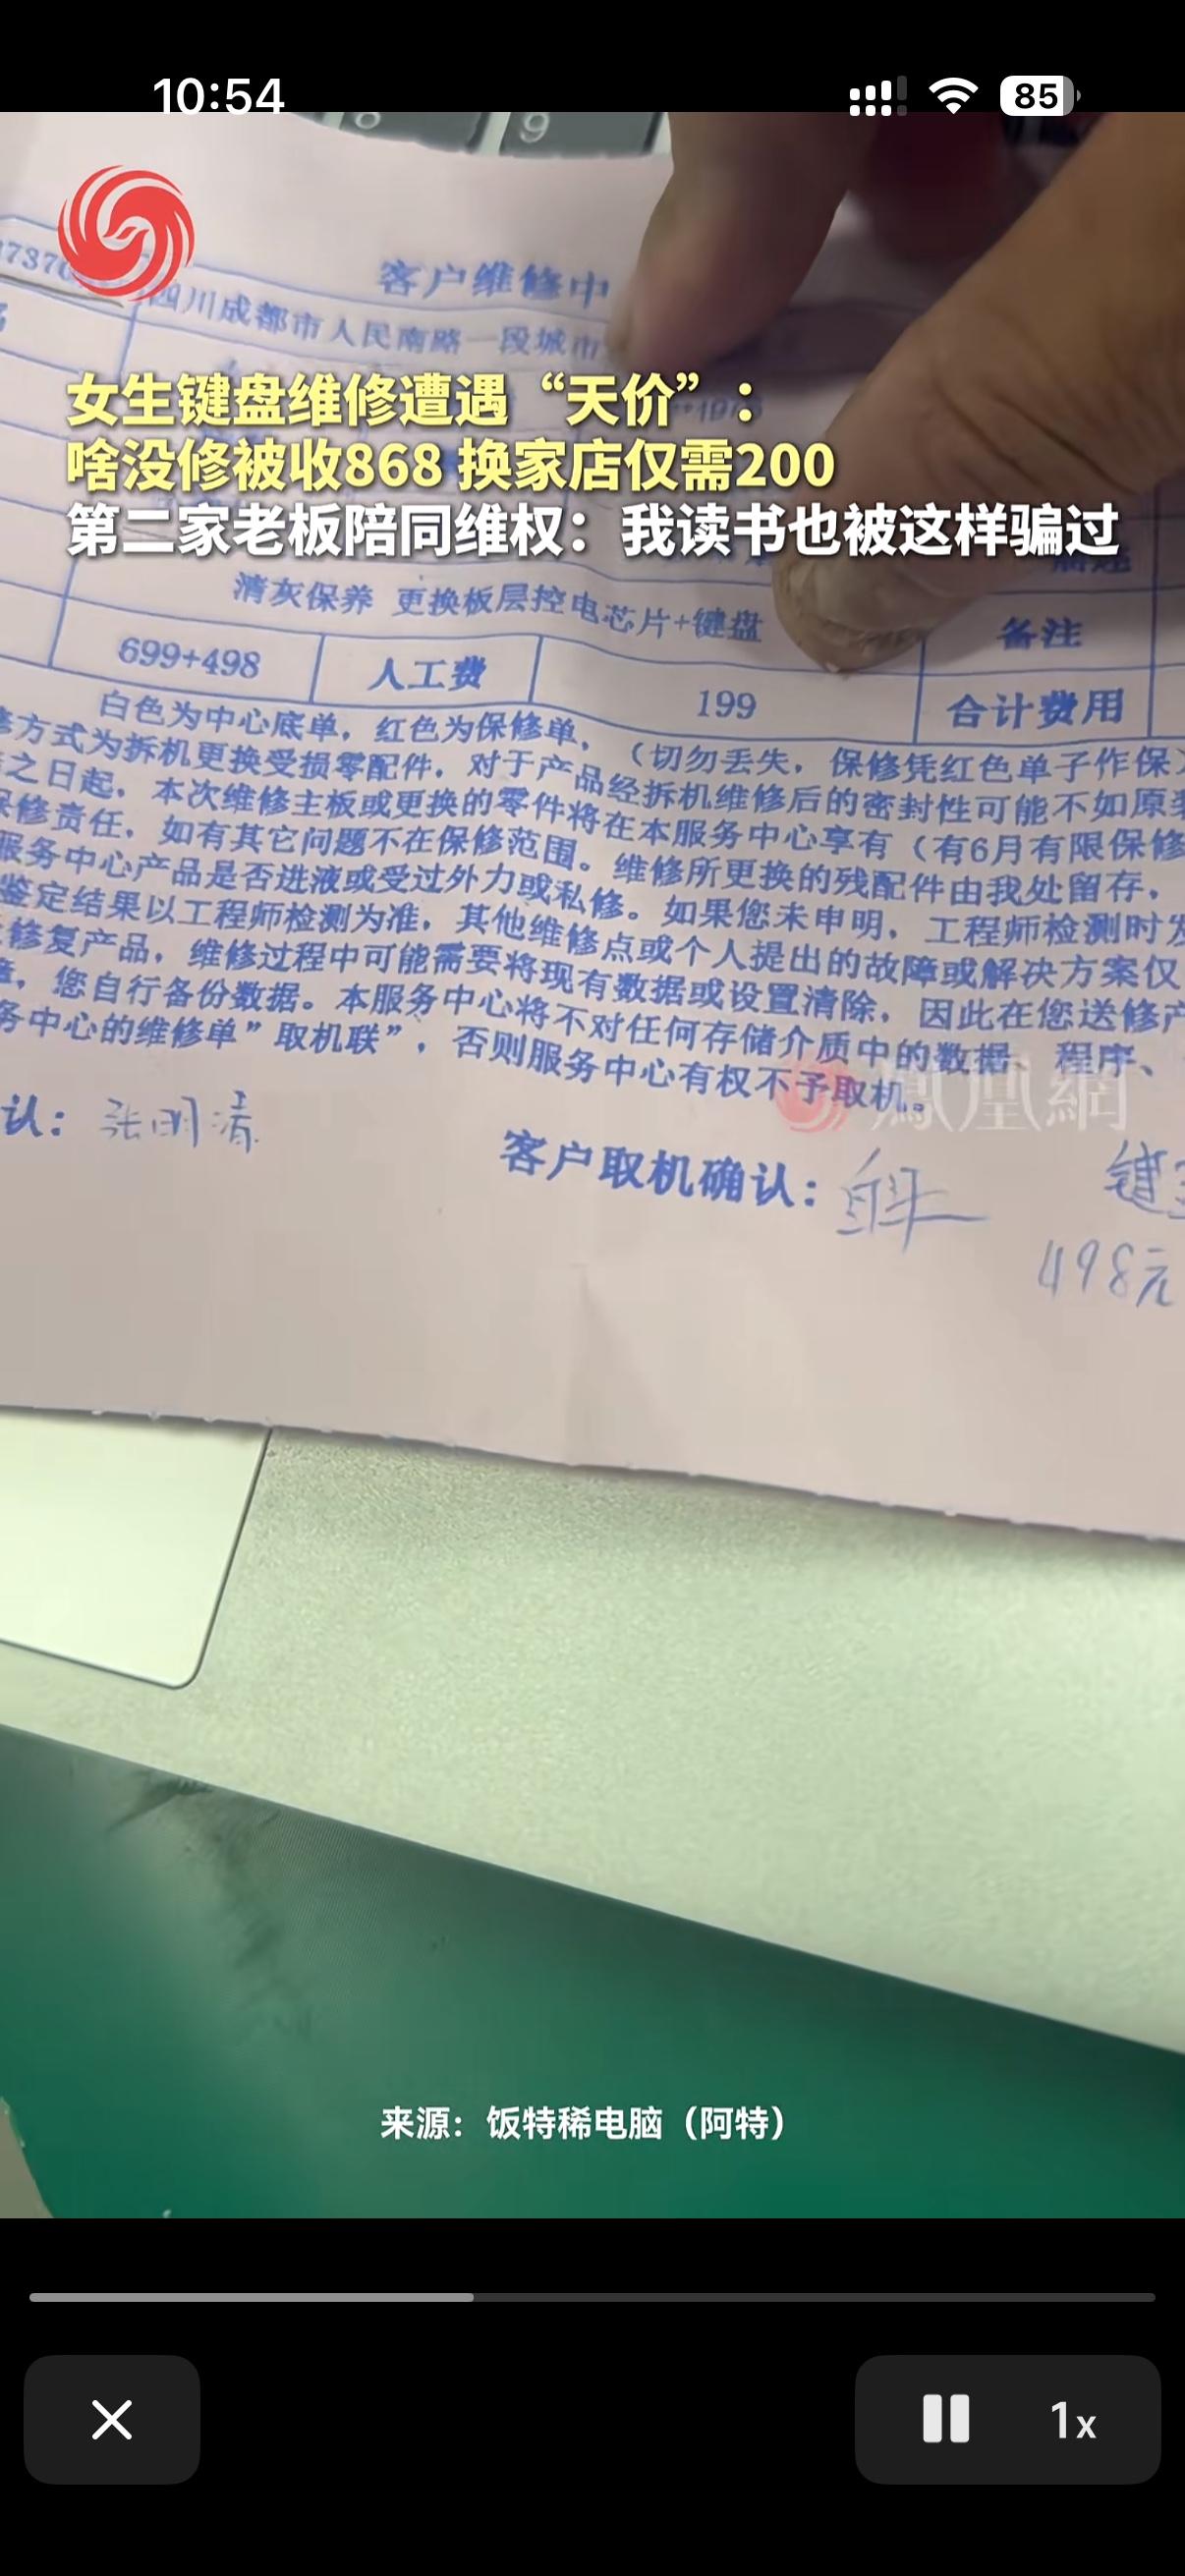 10:54
85
8
9
客户维修中
四川成都市人民南路一段城市
女生键盘维修遭遇“天价”：
啥没修被收868 换家店仅需200
第二家老板陪同维权：我读书也被这样骗过
清灰保养 更换板层控电芯片+键盘
备注
699+498
人工费
199
合计费用
白色为中心底单，红色为保修单，（切勿丢失，保修凭红色单子作保）
修方式为拆机更换受损零配件，对于产品经拆机维修后的密封性可能不如原装
之日起，本次维修主板或更换的零件将在本服务中心享有（有6月有限保修
保修责任，如有其它问题不在保修范围。维修所更换的残配件由我处留存，
服务中心产品是否进液或受过外力或私修。如果您未申明，工程师检测时发
鉴定结果以工程师检测为准，其他维修点或个人提出的故障或解决方案仅
修复产品，维修过程中可能需要将现有数据或设置清除，因此在您送修产
您自行备份数据。本服务中心将不对任何存储介质中的数据、程序、
务中心的维修单”取机联”，否则服务中心有权不予取机。
鳳凰網
认：张明清
客户取机确认：
键
498元
来源：饭特稀电脑（阿特）
1x